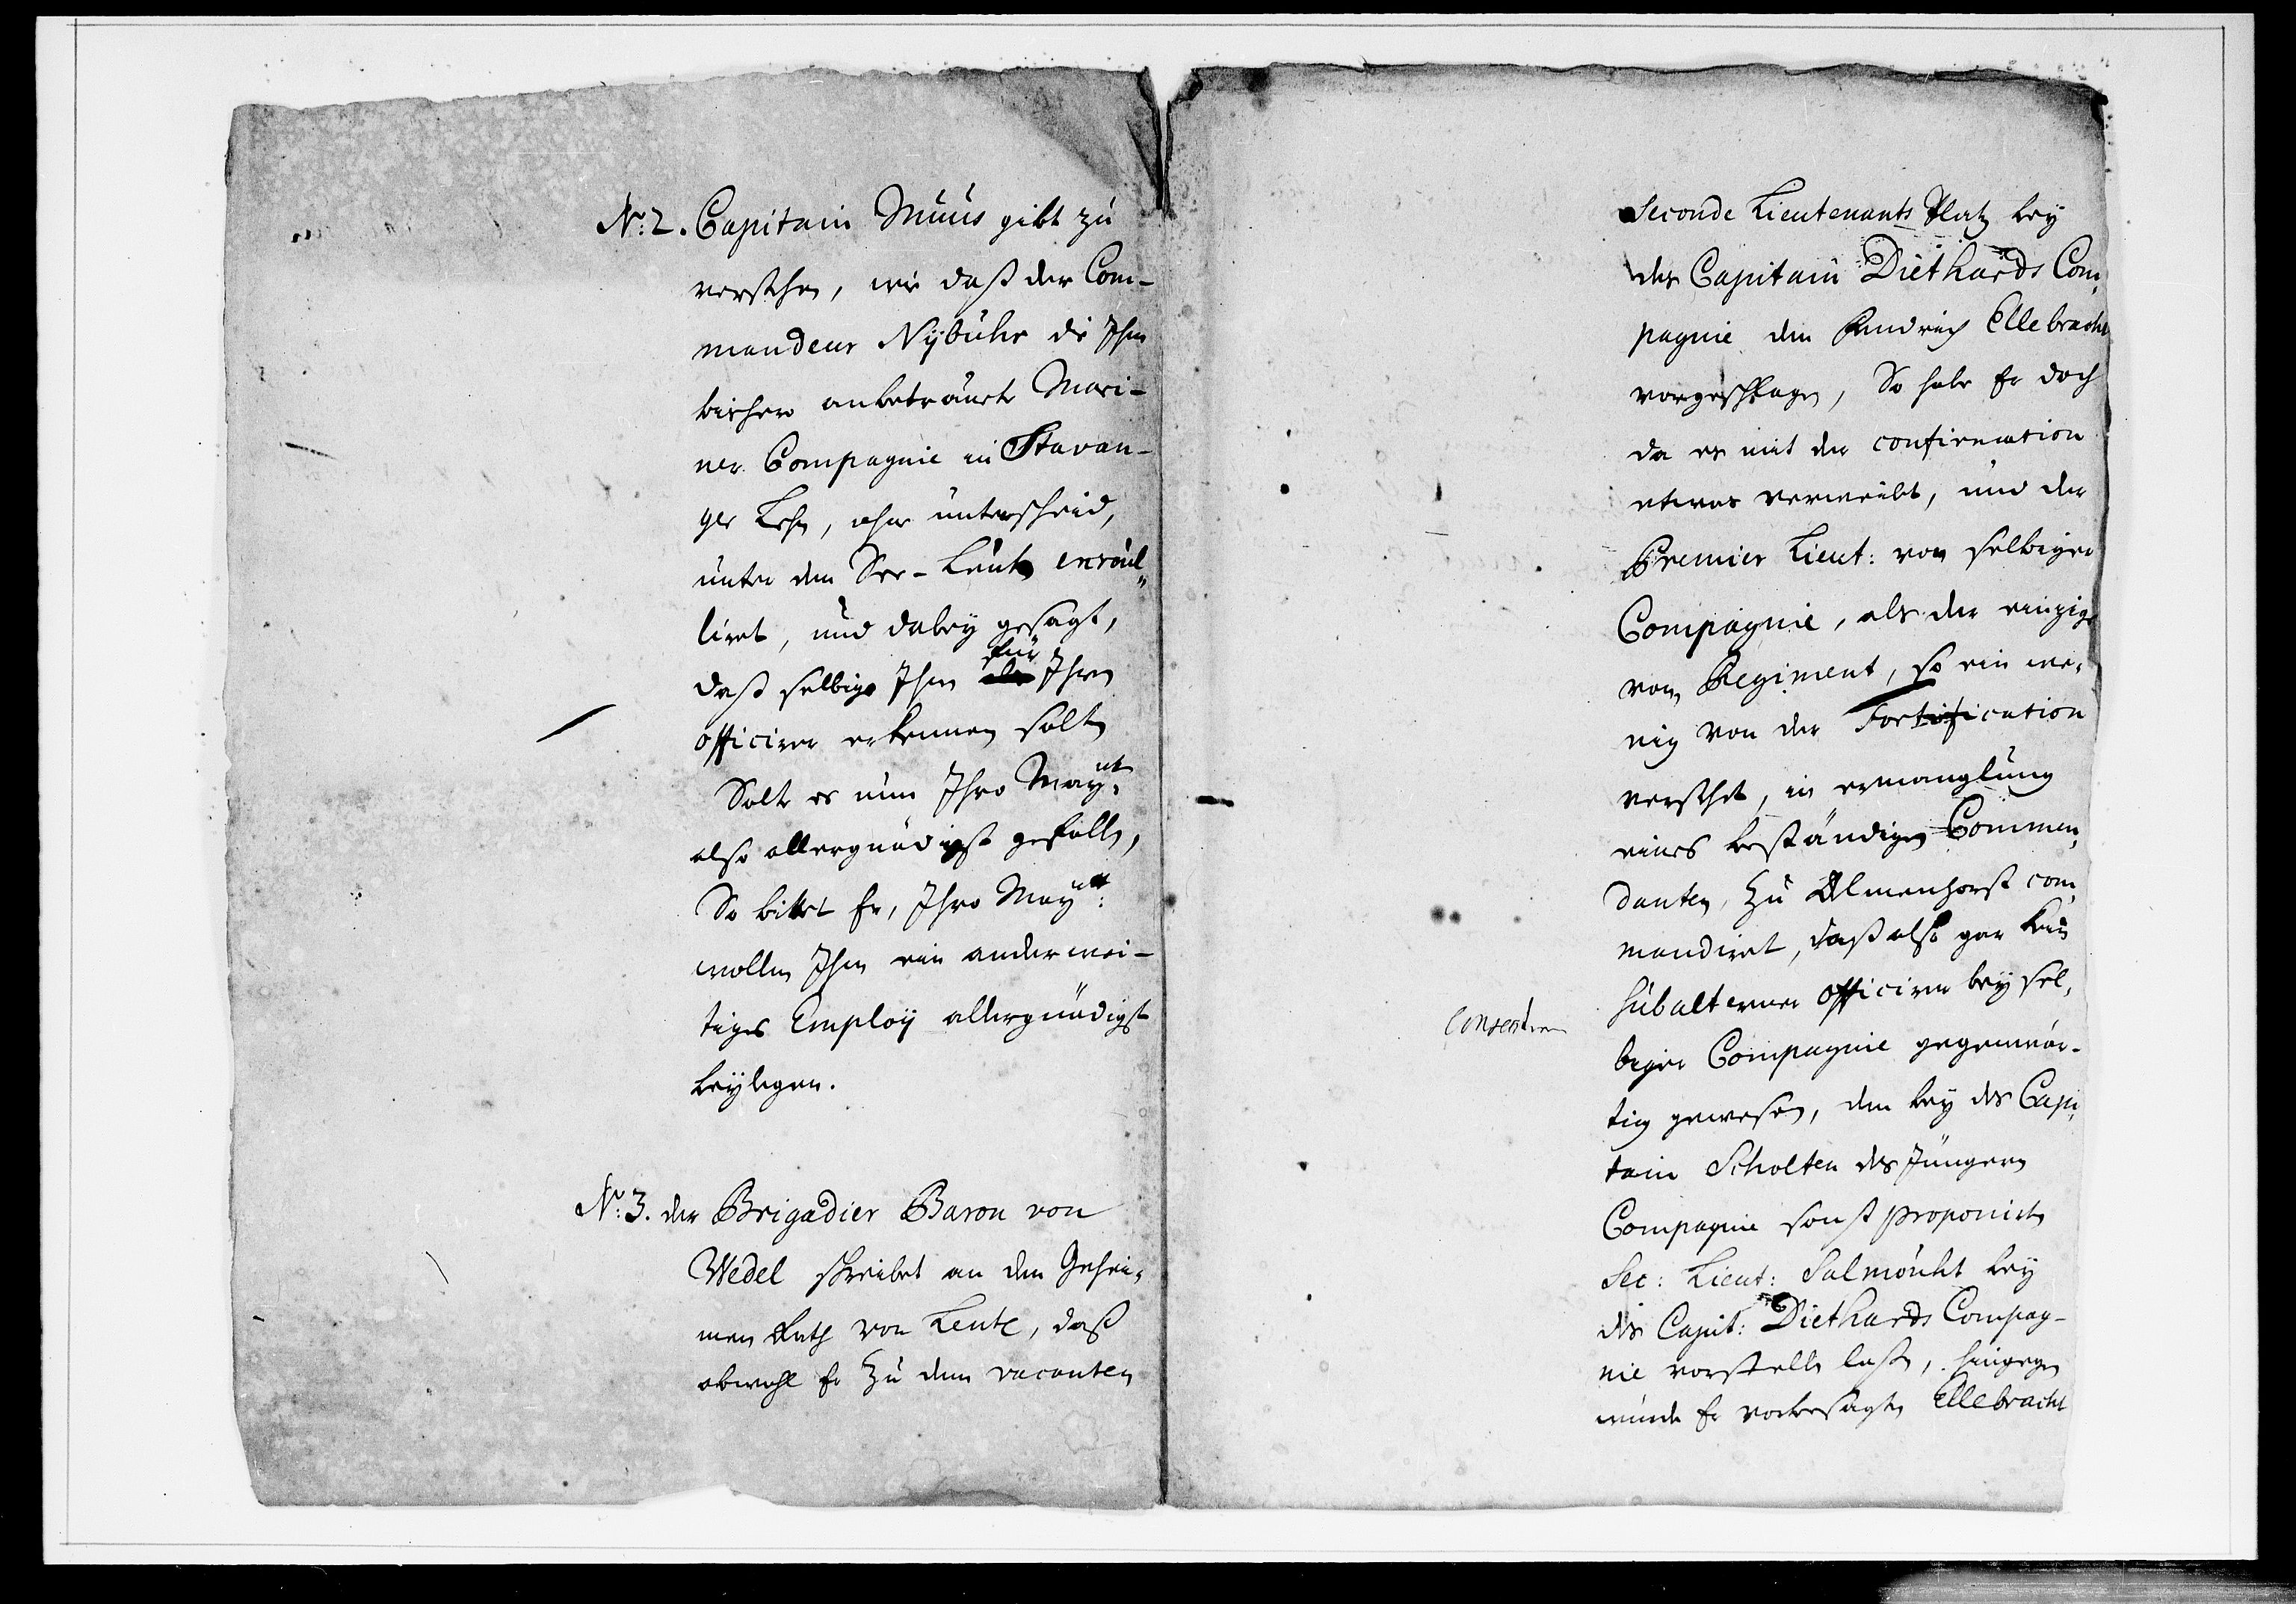 No: 2. Capitain Muus gibt zu
verstehen, wie daß der Com-
mandeur Nÿbuhr die Ihm
bishero anbetraute Mari-
ner Compagnie in Stavan-
ger Lehn, ohne unterscheid,
unter den See-Leuten enroul-
liret, und dabeÿ gesagt,
daß selbige Ihm für Ihren
officirer erkennen solten
Solte es nun Ihro Maÿtt:
also allergnädigst gefallen,
So bittet Er, Ihro Maÿtt:
wollen Ihm ein anderwei-
tiges Employ allergnädigst
beÿlegen.
No: 3. der Brigadier Baron von
Wedel schreibet an den Gehei-
men Rath von Lente, daß
obwohl Er zu dem vacanten
Seconde Lieutenants Platz beÿ
des Capitain Diethards Com-
pagnie den Fendrich Ellebracht
vorgeschlagen, So habe Er doch
da es mit der confirmation
etwas verweilet, und der
Premier Lieut: von selbiger
Compagnie, als der einzige
vom Regiment, so ein we-
nig von der Fortification
verstehet, in ermanglung
eines beständigen Commen-
danten, zu Delmenhorst com-
mandiret, daß also gar kein
subalterner officirer beÿ sel-
biger Compagnie gegenwär-
tig gewesen, den beÿ des Capi-
tain Scholten des Jüngern
Compagnie sonst proponirten
Sec: Lieut: Salmöuht beÿ
des Capit: Diethards Compag-
nie vorstellen laßen, hingegen
würde Er vorbesagten Ellebracht